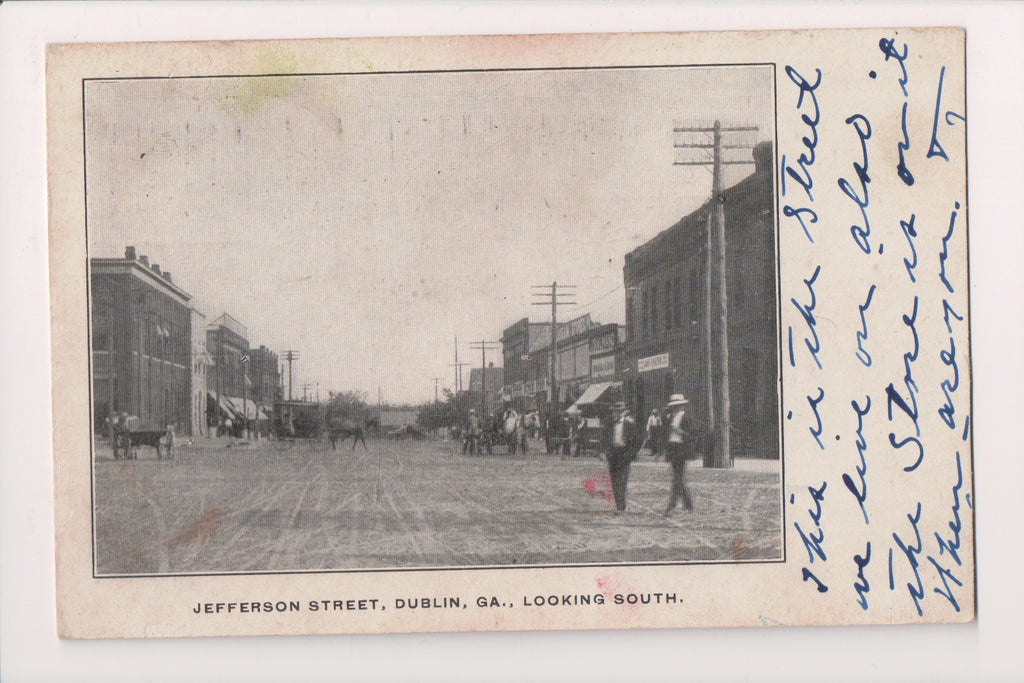 JEFFERSON STREET, DUBLIN, GA., LOOKING SOUTH.
This is the Street
we live on also
the Store is on it
are you.